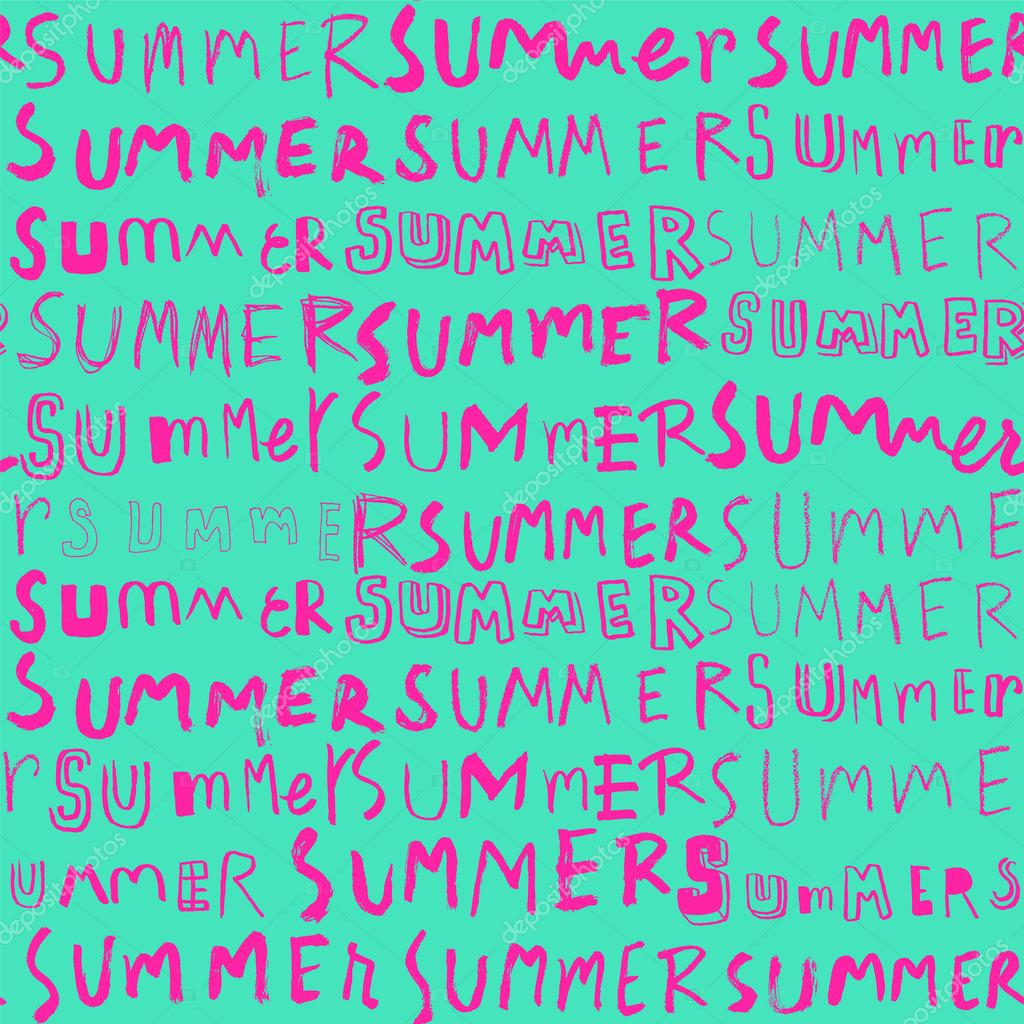 R SUMMER SUMmer SUMMER
SUMMER SUMMER SUMmER
SUmMER SUMMER SUMMER
R SUMMER SUMMER SUMMER
SUmMer SUMmER SUMmer
r SUMmER SUMMER SUMME
SUmMER SUMMER SUMMER
SUMMER SUMMER SUMmER
r SUmMer SUMmER SUMME
UMmER SUMMER SUmMER S
SUMMEr SUMMER SUMMER